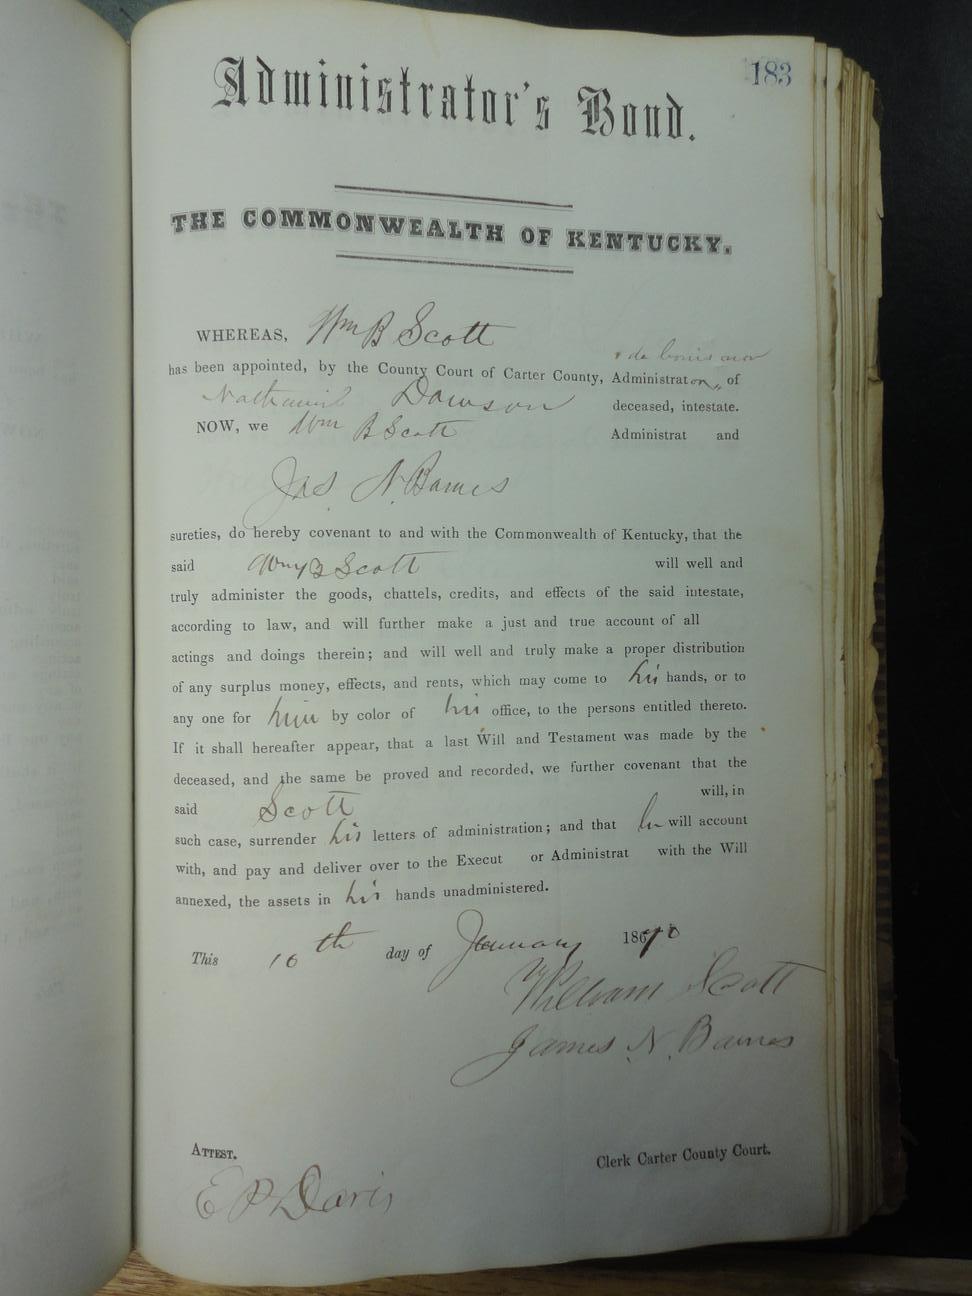 183
Administrator's Bond.
THE COMMONWEALTH OF KENTUCKY.
WHEREAS, Wm B Scott
de bonis non
has been appointed, by the County Court of Carter County, Administrator, of
Nathaniel Dawson deceased, intestate.
NOW, we Wm B Scott Administrat and
Jas N. Barnes
sureties, do hereby covenant to and with the Commonwealth of Kentucky, that the
said Wm B Scott will well and
truly administer the goods, chattels, credits, and effects of the said intestate,
according to law, and will further make a just and true account of all
actings and doings therein; and will well and truly make a proper distribution
of any surplus money, effects, and rents, which may come to his hands, or to
any one for him by color of his office, to the persons entitled thereto.
If it shall hereafter appear, that a last Will and Testament was made by the
deceased, and the same be proved and recorded, we further covenant that the
said Scott will, in
such case, surrender his letters of administration; and that he will account
with, and pay and deliver over to the Execut or Administrat with the Will
annexed, the assets in his hands unadministered.
This 10th day of January 1870
William Scott
James N. Barnes
ATTEST.
Clerk Carter County Court.
E P Davis